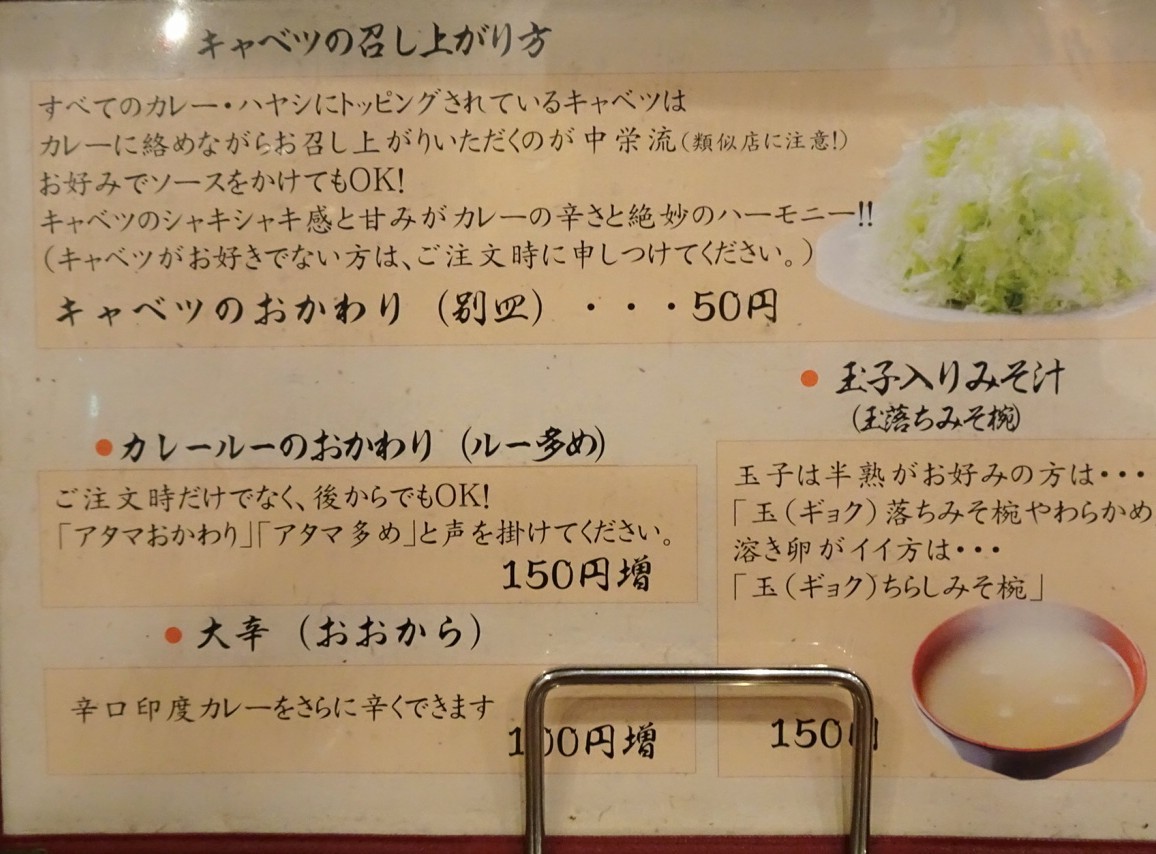 キャベツの召し上がり方
すべてのカレー・ハヤシにトッピングされているキャベツは
カレーに絡めながらお召し上がりいただくのが中栄流(類似店に注意!)
お好みでソースをかけてもOK!
キャベツのシャキシャキ感と甘みがカレーの辛さと絶妙のハーモニー!!
(キャベツがお好きでない方は、ご注文時に申しつけてください。)
キャベツのおかわり(別皿)・・・50円
● カレールーのおかわり(ルー多め)
ご注文時だけでなく、後からでもOK!
「アタマおかわり」「アタマ多め」と声を掛けてください。
150円増
● 大辛(おおから)
辛口印度カレーをさらに辛くできます
100円増
● 玉子入りみそ汁
(玉落ちみそ椀)
玉子は半熟がお好みの方は・・・
「玉(ギョク)落ちみそ椀やわらかめ
溶き卵がイイ方は・・・
「玉(ギョク)ちらしみそ椀」
150円